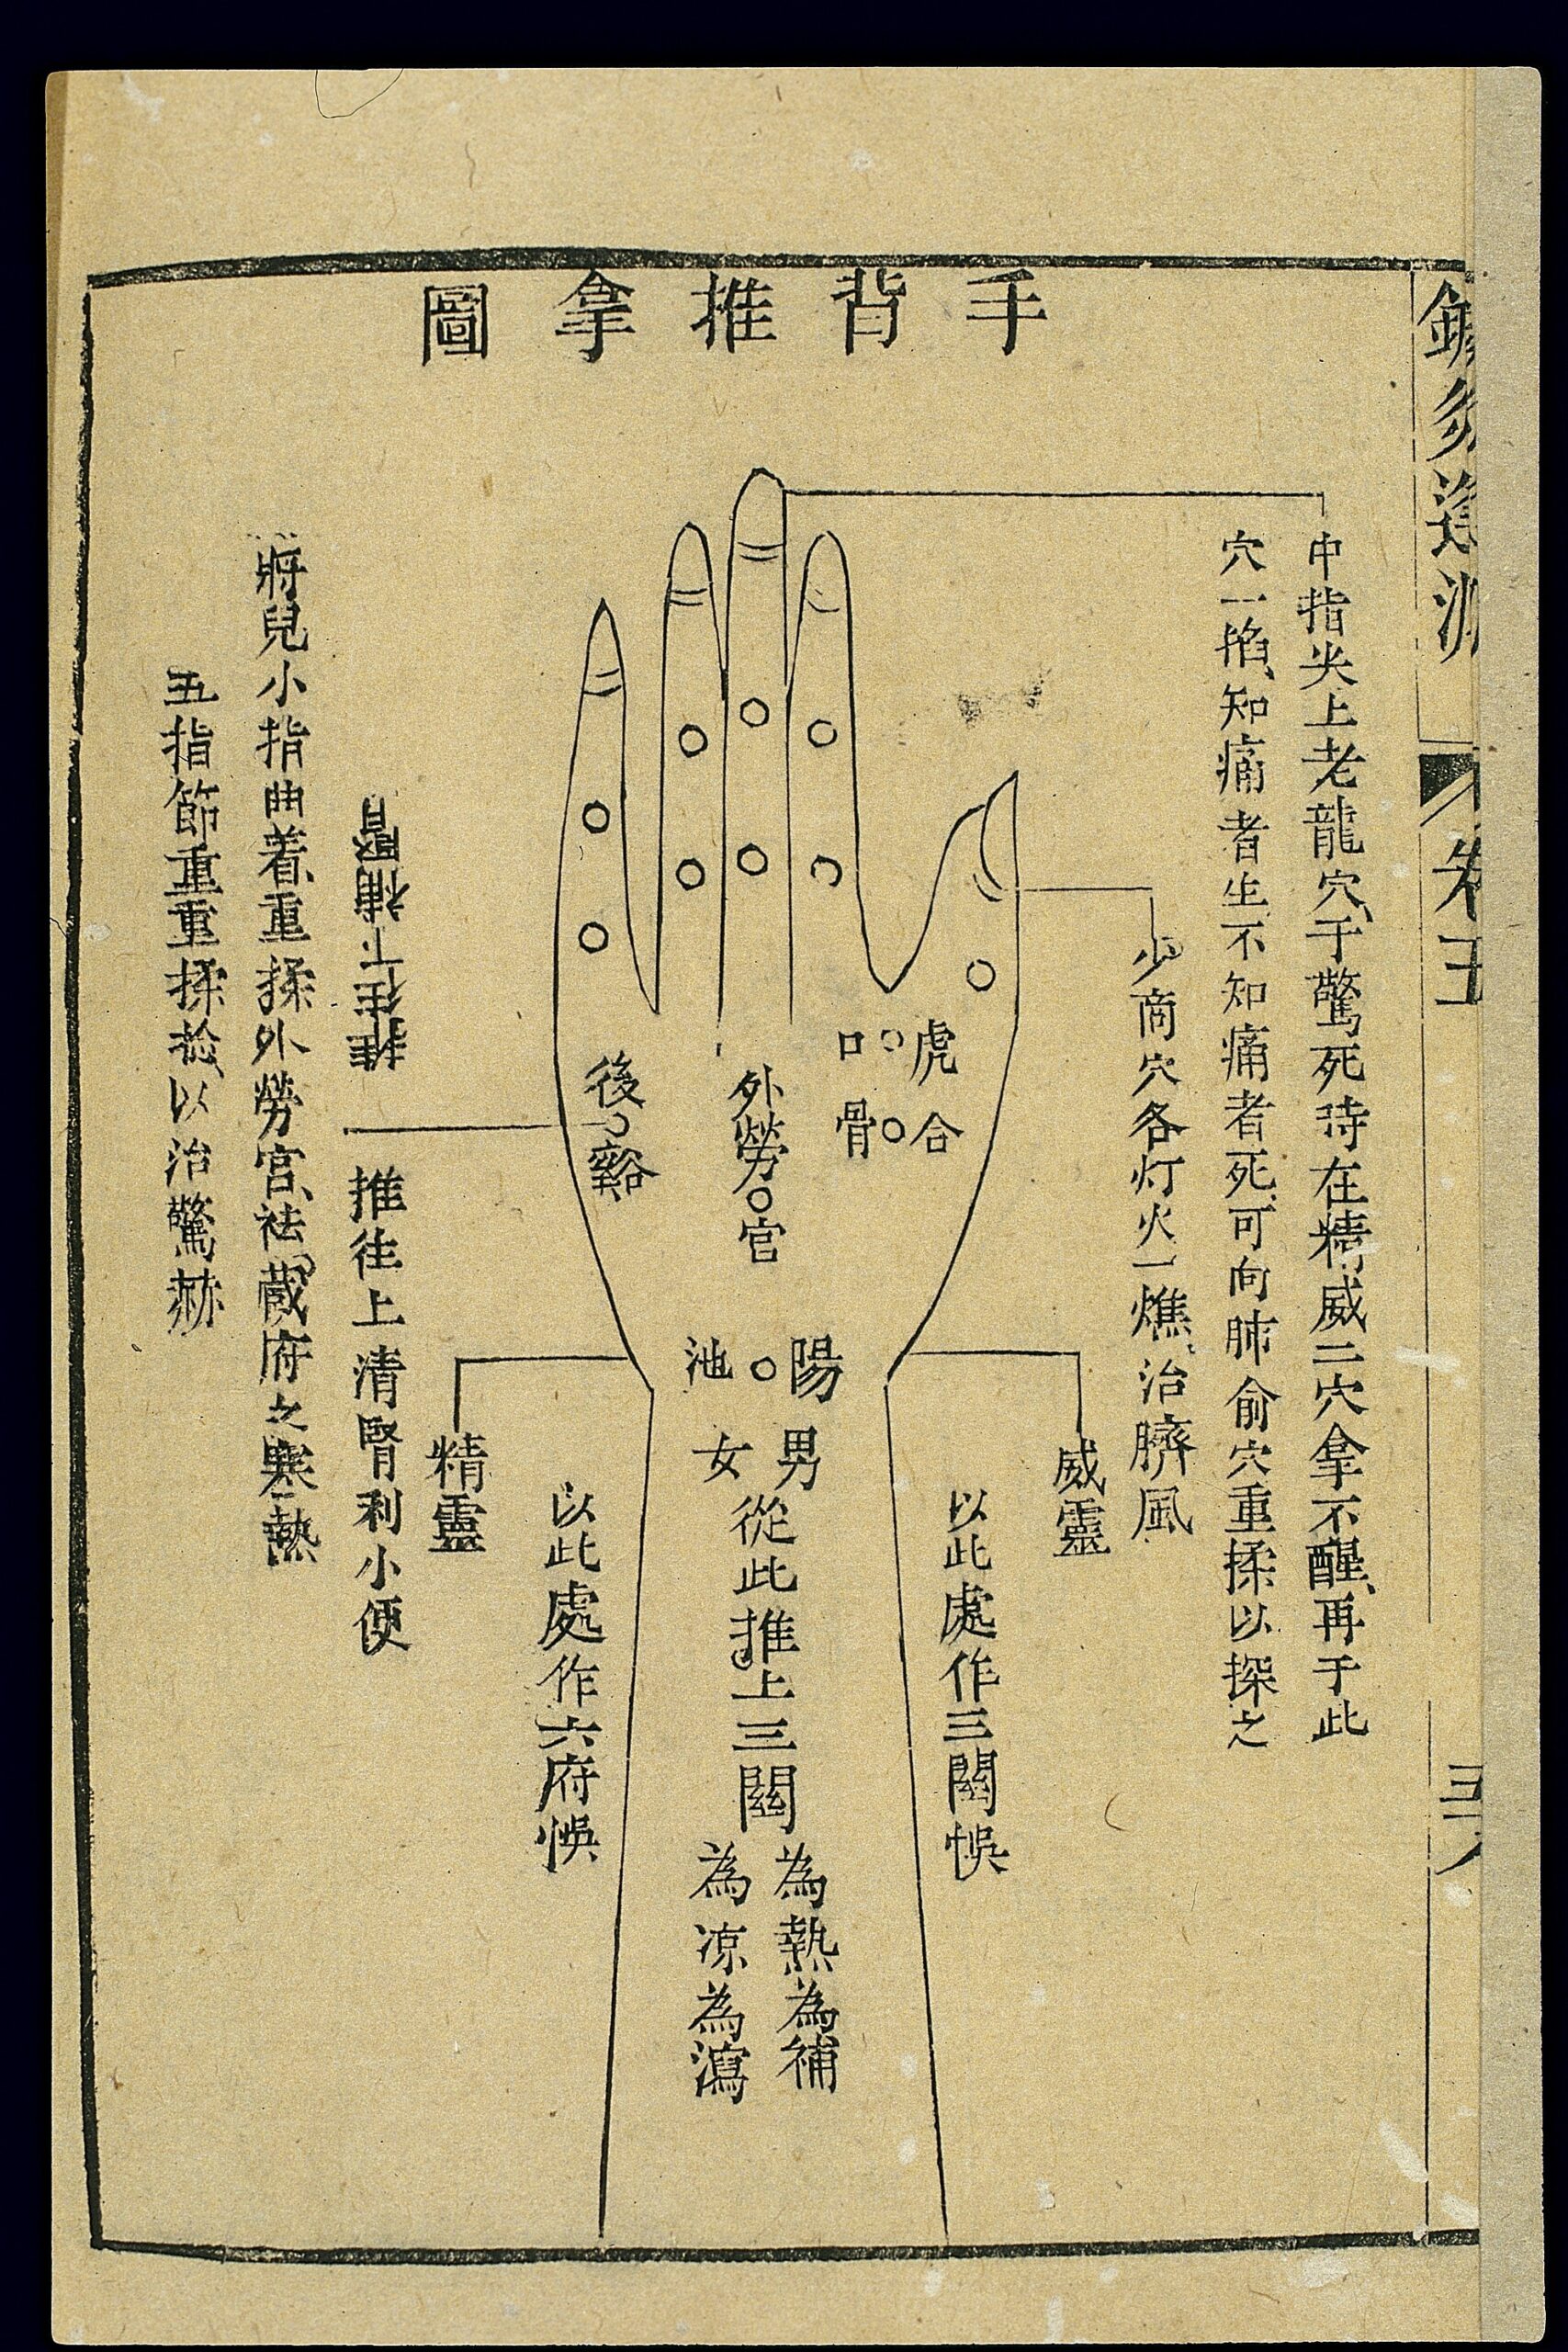 手背推拿圖
卷五
中指尖上老龍穴、于驚死時在精威二穴拿不醒、再于此
穴一掐、知痛者生、不知痛者死、可向肺俞穴重揉以探之
少商穴各灯火一燋、治臍風
威靈
以此處作三關悞
虎口
合骨
外勞宮
後谿
陽池
男女從此推上三關
為熱為補
為凉為瀉
以此處作六府悞
精靈
推往上清腎利小便
推往下補腎
將兒小指曲着、重揉外勞宮、祛蔵府之寒熱
五指節重重揉捻、以治驚赫